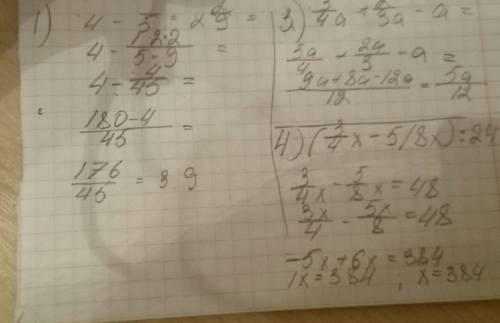 1) 4 - /5 · 2 /9 =
4 - 12·2/5·9 =
4 - 4/45 =
180-4/45 =
176/45 = 3 9
2) 3/4a + 2/3a - a =
3a/4 + 2a/3 - a =
9a+8a-12a/12 = 5a/12
4) (3/4x - 5/8x) : 24
3/4x - 5/8x = 48
3x/4 - 5x/8 = 48
-5x+6x = 384
1x = 384 , x = 384